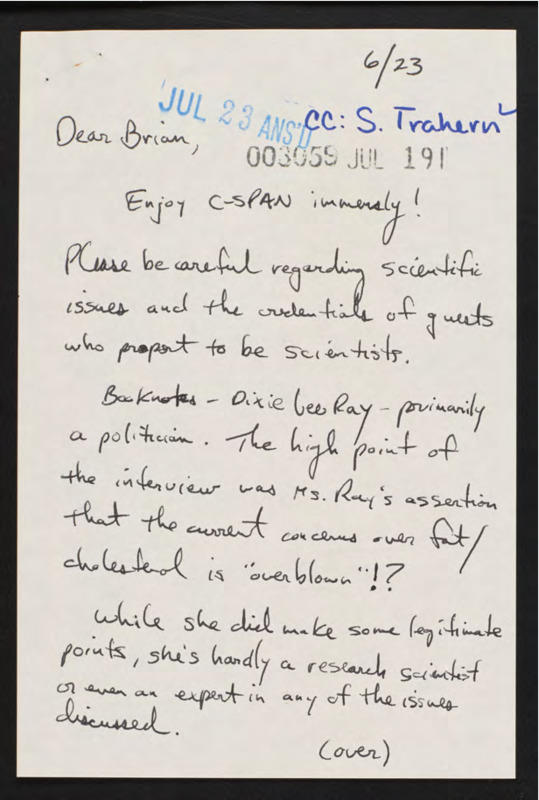 6/23
JUL 23 ANS'D
CC: S. Trahern
Dear Brian,
003059 JUL 191
Enjoy C-SPAN immensly!
Please be careful regarding scientific
issues and the credentials of guests
who propost to be scientists.
Booknotes - Dixie Lee Ray - primarily
a politician. The high point of
the interview was Ms. Ray's assertion
that the current concerns over fat/
cholesterol is "overblown"!?
While she did make some legitimate
points, she's hardly a research scientist
or even an expert in any of the issues
discussed.
(over)